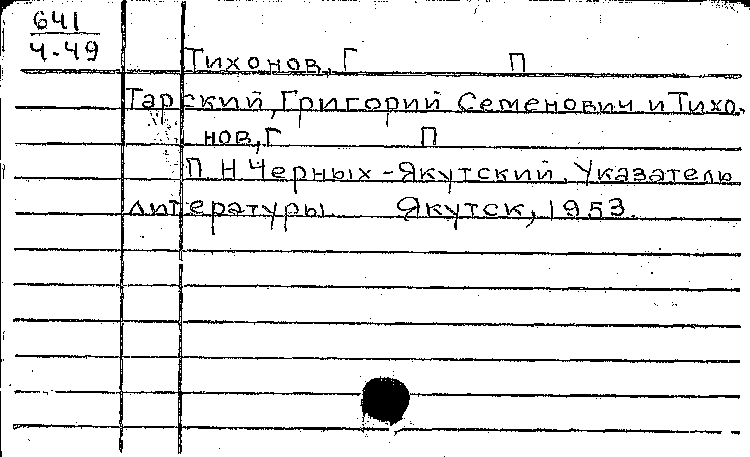 641
Ч-49
Тихонов, Г П
Тарский, Григорий Семенович и Тихо-
нов, Г П
П Н Черных-Якутский. Указатель
литературы Якутск, 1953.